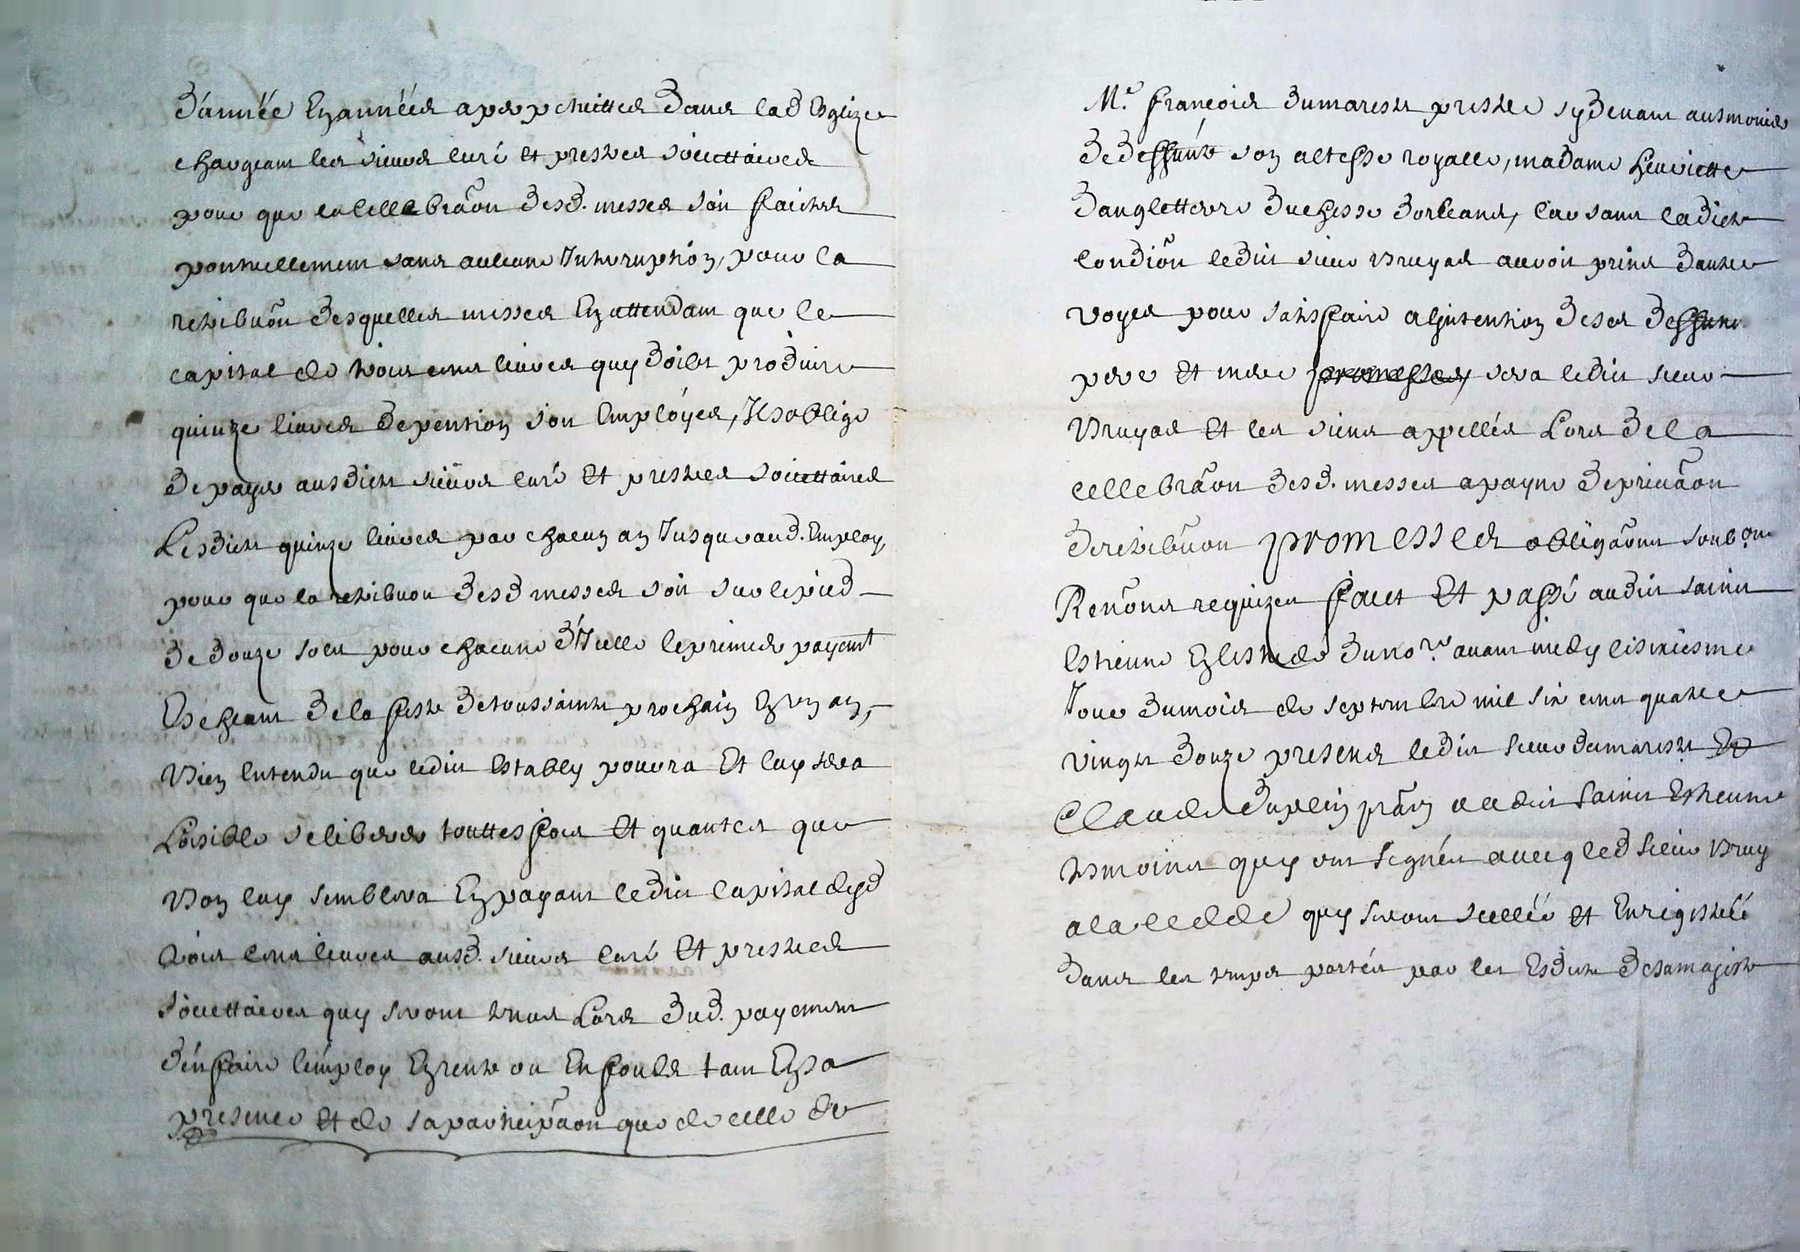 d'année En années a perpetuitté dans lad Esglize
chargeant les sieurs curé et prestres societtaires
pour que la cellebraōn desd. messes soit faictes
ponctuellement sans aulcune Interuption, pour la
retribuōn desquelles messes En attendant que le
capital de trois cens livres quy doibt produire
quinze livres de pention soit Employer, Il s'oblige
de payer ausdicts sieurs curé Et prestres societtaires
Lesdicts quinze livres par chacun an Jusques aud. Employ,
pour que la retribuon desd messes soit sur le pied
de douze solz pour chacune d'Icelle le premier payemt
Escheant de la feste de toussaincts prochain En un an,
Bien Entendu que ledict Estably pourra Et luy sera
Loisible se liberer touttesfois Et quantes que
Bon luy semblera En payant ledict capital desd
trois cens livres ausd. sieurs curé Et prestres
societtaires quy seront tenus Lors dud. payement
d'en faire l'employ En rente ou En fonds tant En sa
presence Et de sa participāon que de celle de
Mᵉ françois dumareste prestre sy devant ausmonier
de deffuncte son altesse royalle, madame henriette
d'angletterre duchesse dorleans, car sans ladicte
condiōn ledict sieur Bruyas auroit prins d'autres
voyes pour satisfaire a l'intention de ses deffunts
pere Et mere promesses, sera ledict sieur
Bruyas Et les siens appellés Lors de la
cellebrāon desd. messes a payne de privāon
de retribuōn promesses obligāons soub ōn
Renōns requizes faict Et passé audict sainct
Estienne En l'estude du noʳᵉ avant midy le sixiesme
Jour du mois de septembre mil six cens quatre
vingts douze presens ledict sieur dumareste Et
Claude duplein pratn dudict Sainct Estienne
tesmoins quy ont signés avecq led sieur Bruy
as a la cedde quy seront scellée et Enregistré
dans les temps portés par les Esdicts de sa majesté